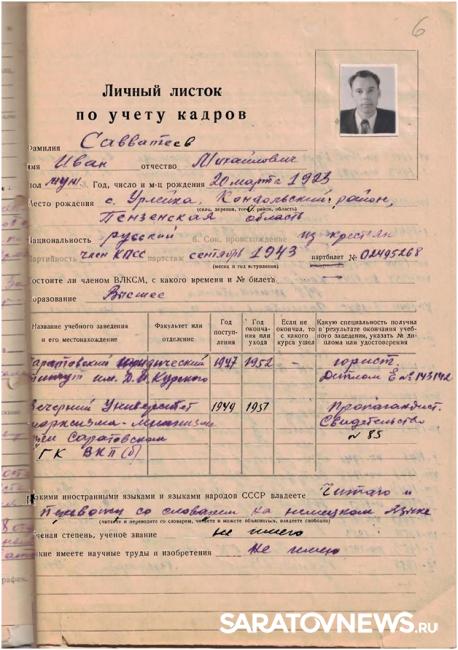 6
Личный листок
по учету кадров
амилия Савватеев
мя Иван отчество Михайлович
ол муж 3. Год, число и м-ц рождения 20 марта 1923
Место рождения с. Урлейка, Кондольский район,
(село, деревня, город, район, область)
Пензенская область
Национальность русский 6. Соц. происхождение из крестьян
артийность член КПСС партстаж сентябрь 1943 партбилет № 02495268
(месяц и год вступления)
остоите ли членом ВЛКСМ, с какого времени и № билета –
разование Высшее
Название учебного заведения и его местонахождение Факультет или отделение Год поступления Год окончания или ухода Если не окончил, то с какого курса ушел Какую специальность получил в результате окончания учебного заведения, указать № диплома или удостоверения
аратовский юридический 1947 1952 – юрист.
нститут им. Д.И. Курского Диплом Е № 143142
Вечерний Университет 1949 1951 Пропагандист.
марксизма-ленинизма Свидетельство
при Саратовском № 85
ГК ВКП(б)
акими иностранными языками и языками народов СССР владеете Читаю и
перевожу со словарем на немецком языке
(читаете и переводите со словарем, читаете и можете объясняться, владеете свободно)
ченая степень, ученое звание не имею
акие имеете научные труды и изобретения Не имею
SARATOVNEWS.RU